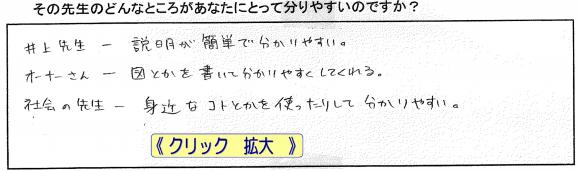 その先生のどんなところがあなたにとって分りやすいのですか？
井上先生 ー 説明が簡単で分かりやすい。
オーナーさん ー 図とかを書いて分かりやすくしてくれる。
社会の先生 ー 身近なコトとかを使ったりして分かりやすい。
《 クリック 拡大 》